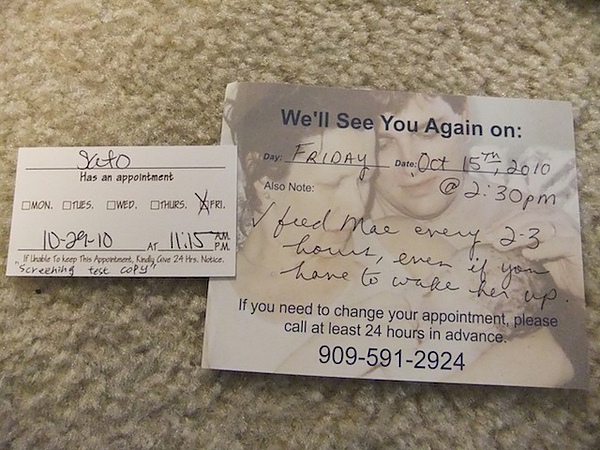 Sato
Has an appointment
MON. TUES. WED. THURS. FRI.
10-29-10 AT 11:15 A.M.
P.M.
If Unable To keep This Appointment, Kindly Give 24 Hrs. Notice.
"Screening test copy"
We'll See You Again on:
Day: FRIDAY Date: Oct 15TH, 2010
@ 2:30pm
Also Note:
✓ feed Mae every 2-3
hours, even if you
have to wake her up.
If you need to change your appointment, please
call at least 24 hours in advance.
909-591-2924